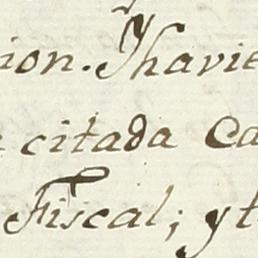 ion. Yhavie
citada Ca
Fiscal; yt